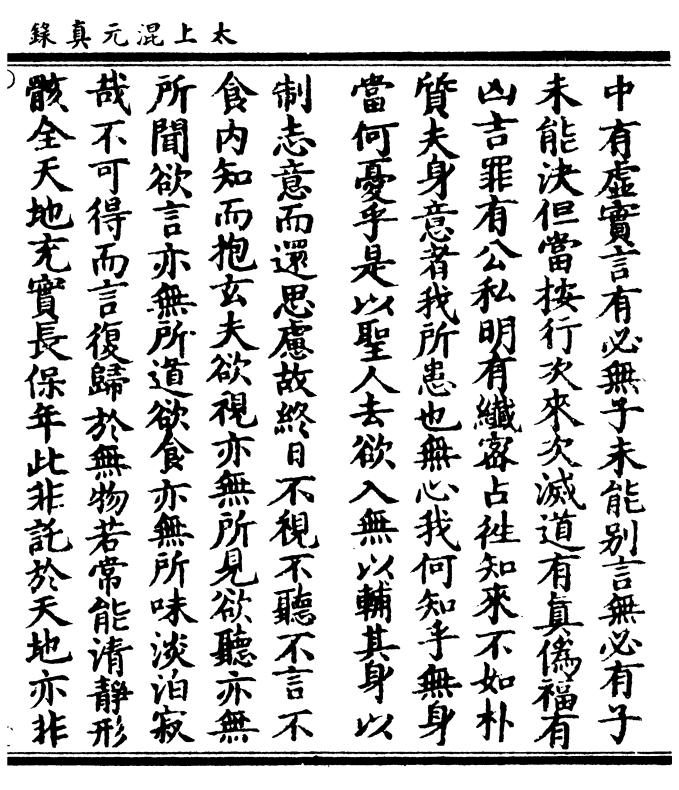 太上混元真錄
中有虛實言有必無子未能別言無必有子
未能決但當按行次來次滅道有真僞福有
凶吉罪有公私明有纖密占徃知來不如朴
質夫身意者我所患也無心我何知乎無身
當何憂乎是以聖人去欲入無以輔其身以
制志意而還思慮故終日不視不聽不言不
食内知而抱玄夫欲視亦無所見欲聽亦無
所聞欲言亦無所道欲食亦無所味淡泊寂
哉不可得而言復歸於無物若常能清靜形
骸全天地充實長保年此非託於天地亦非